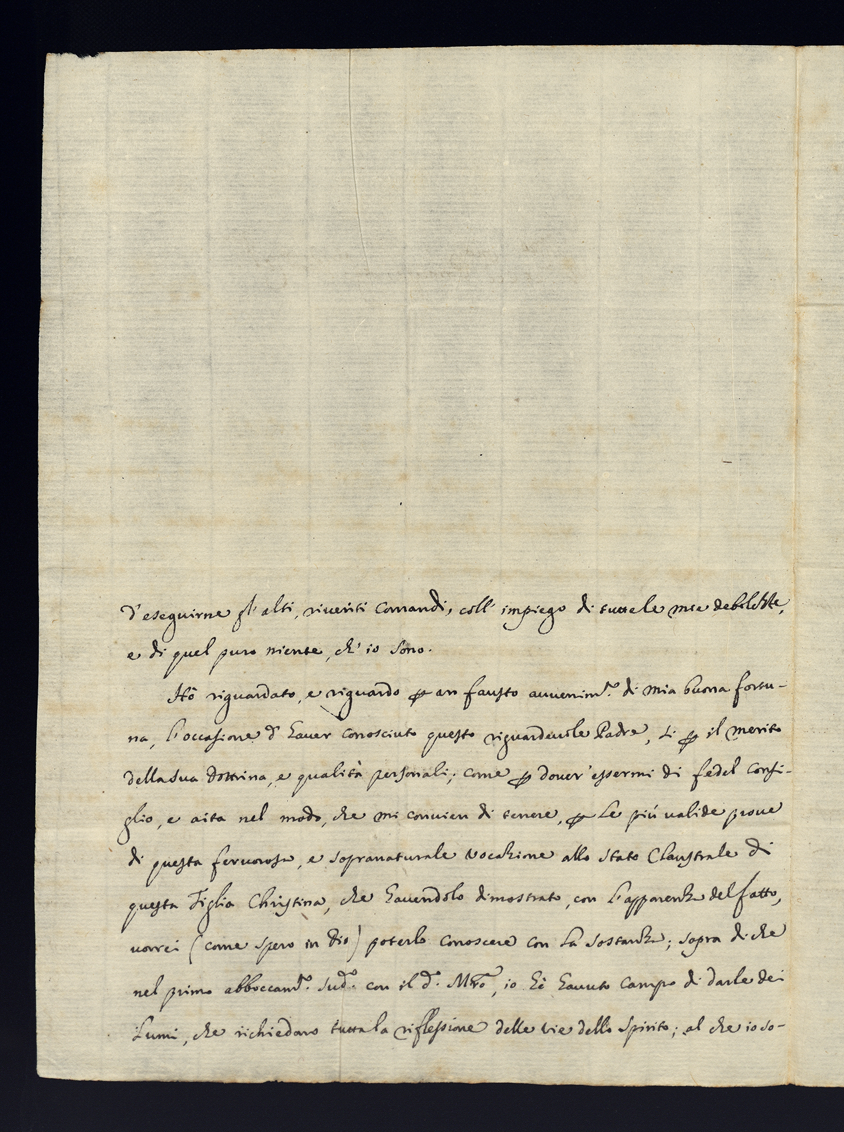 d'eseguirne gl'alti, riveriti Comandi, coll' impiego di tutte le mie debolezze,
e di quel puro niente, ch' io sono.
Hò riguardato, e riguardo ꝑ un fausto avvenim.to di mia buona fortu-
na, l'occasione d'haver conosciuto questo riguardevole Padre, si ꝑ il merito
della sua dottrina, e qualità personali; come ꝑ dover' essermi di fedel Consi-
glio, e aita nel modo, che mi convien di tenere, ꝑ le più valide prove
di questa fervorosa, e sopranaturale vocazione allo stato Claustrale di
questa Figlia Christina, che havendolo dimostrato, con l'apparenza del fatto,
vorrei (come spero in Dio) poterlo conoscere con la sostanza; sopra di che
nel primo abboccam.to sud.o con il d.o Mro, io hò havuto Campo di darle dei
Lumi, che richiedano tutta la riflessione delle vie dello Spirito; al che io so-